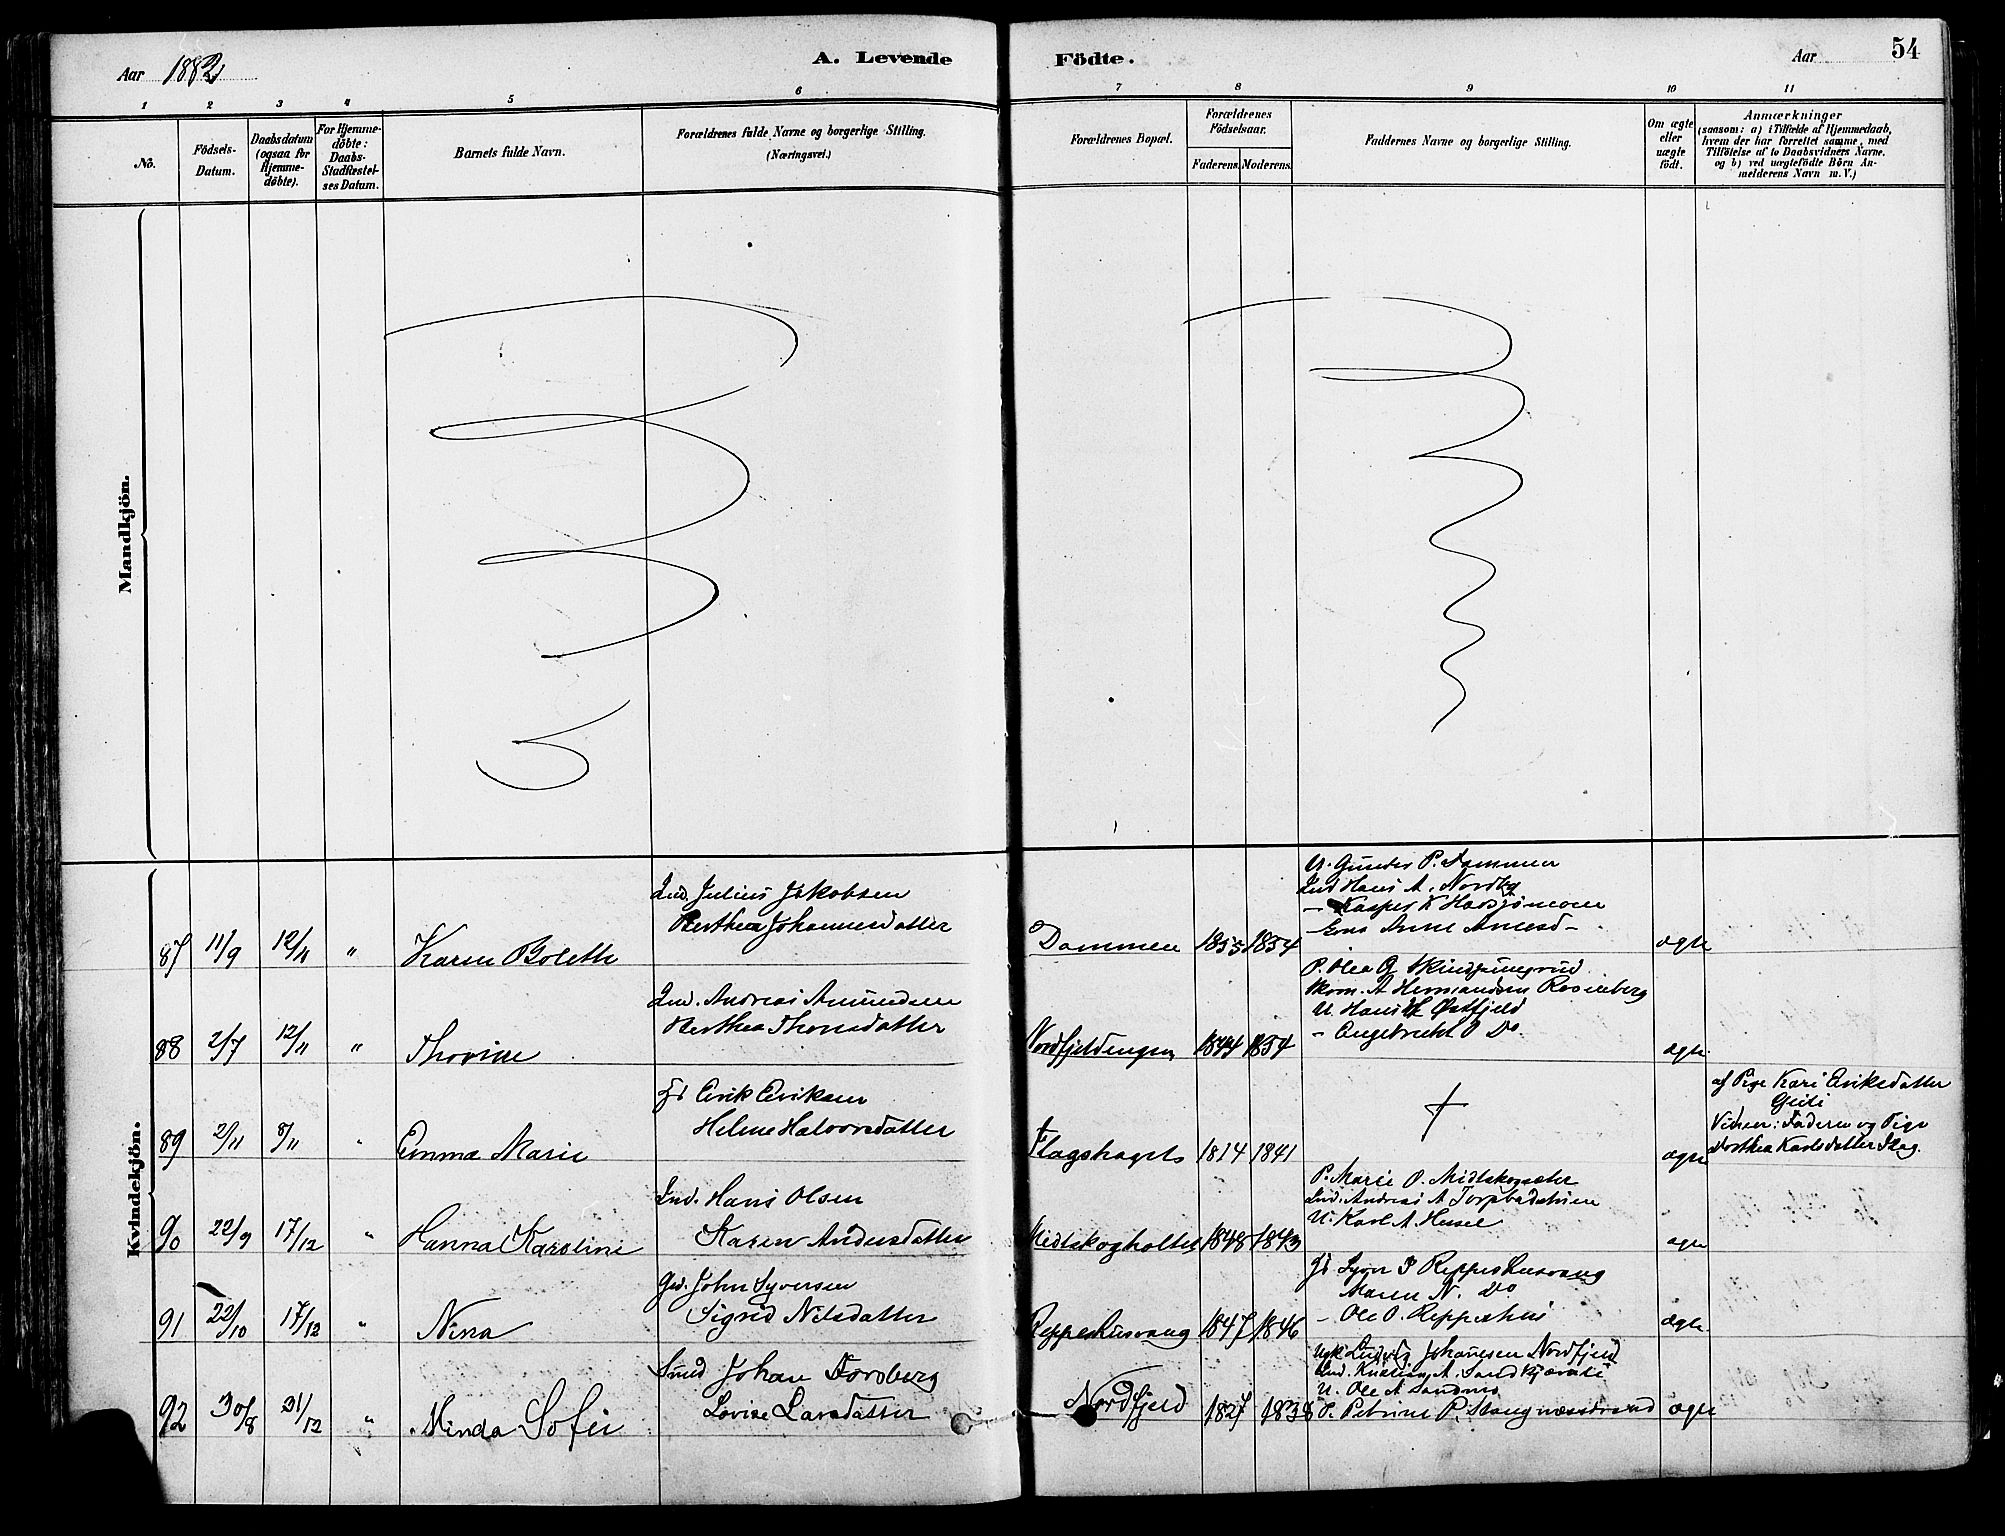 Aar 1882
A. Levende
Födte.
Aar
54
1 2 3 4 5 6 7 8 9 10 11
No.
Födsels-
Datum.
Daabsdatum
(ogsaa for
Hjemme-
döbte).
For Hjemme-
döbte:
Daabs-
Stadfæstel-
ses Datum.
Barnets fulde Navn.
Forældrenes fulde Navne og borgerlige Stilling.
(Næringsvei.)
Forældrenes Bopæl.
Forældrenes
Födselsaar.
Faderens. Moderens.
Faddernes Navne og borgerlige Stilling.
Om ægte
eller
uægte
födt.
Anmærkninger
(saasom: a) i Tilfælde af Hjemmedaab,
hvem der har forrettet samme, med
Tilföielse af to Daabsvidners Navne,
og b) ved uægtefödte Börn An-
melderens Navn m. V.)
Mandkjön.
Kvindekjön.
Ind. Julius Jakobsen
Berthea Johannesdatter
87 11/9 12/11 " Karen Boleth
Dammen 1855 1854
U. Gunder P. Dammen
Ind Hans A. Nordby
- Kasper K
Anne Amund-
ægte
Ind. Andreas Amundsen
Berthea Thorsdatter
88 2/7 12/11 " Thorine
Nordfjeldengen 1844 1854
P. Olea
A Hermandsen Rosenberg
U. Hans H Østfjeld
- Engebrecht O Do
ægte
Erik Eriksen
Helene Halvorsdatter
89 2/11 8/11 " Emma Marie
Flagshagets 1814 1841
†
ægte
af Pige Kari Eriksdatter
Vidner: Faderen og Pige
Dorthea Karlsdatter Flag.
Ind. Hans Olsen
Karen Andersdatter
90 22/9 17/12 " Hanna Karoline
Midtskogholtet 1848 1843
P. Marie O. Midtskogsæter
Ind. Andreas A
U. Karl A. Husel
ægte
Gd. John Syversen
Sigrid Nilsdatter
91 22/10 17/12 " Nina
Reppeshusvang 1847 1846
Syver Reppeshusvang
Maren N. Do
- Ole O. Reppeshus
ægte
Smed Johan Forsberg
Lovise Larsdatter
92 30/8 31/12 " Minda Sofie
Nordfjeld 1827 1838
Ludvig Johannesen Nordfjeld
Ind. Kristian A.
U. Ole A Sandnes
P. Petrine P. Stangnæsstrand
ægte